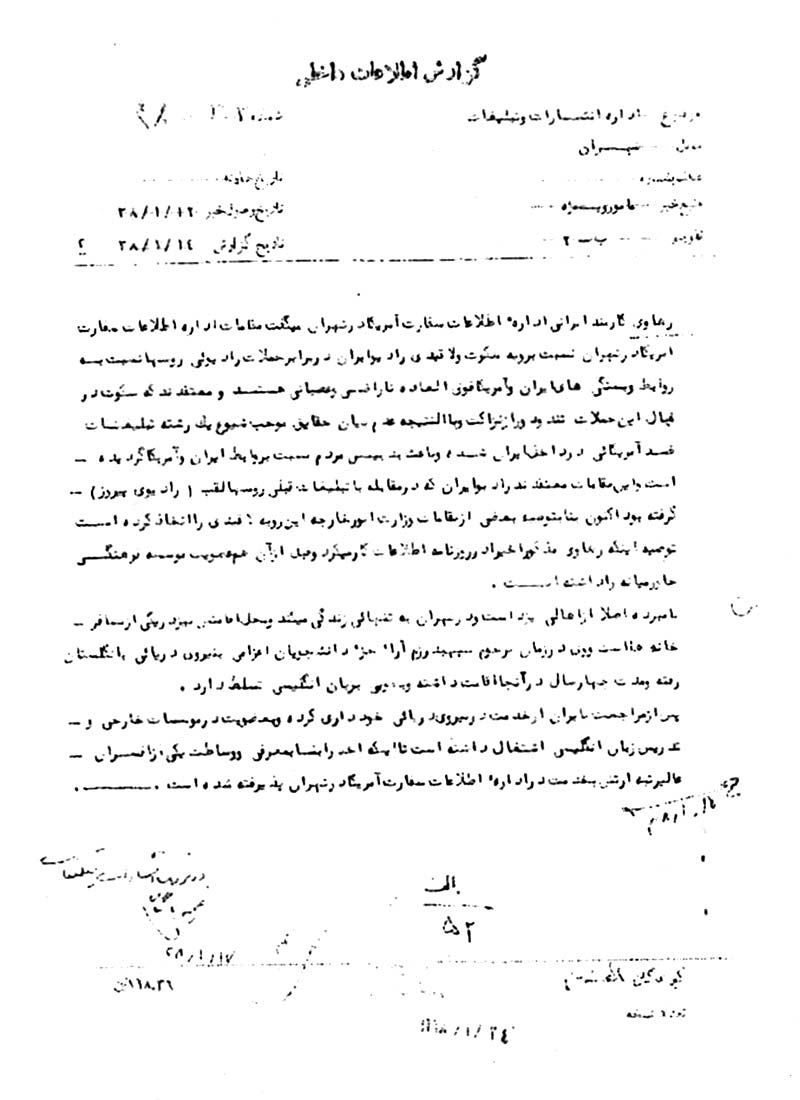 گزارش اطلاعات داخلی
موضوع اداره انتشارات و تبلیغات شماره
محل تهران
تاریخ حادثه
منبع خبر مامور ویژه تاریخ وصول خبر ۲۸/۱/۱۲
تقویم ب ـ ۲ تاریخ گزارش ۲۸/۱/۱۴
کارمند ایرانی اداره اطلاعات سفارت آمریکا در تهران میگفت مقامات اداره اطلاعات سفارت
امریکا در تهران نسبت برویه سکوت و لاقیدی رادیو ایران در برابر حملات رادیوئی روسها نسبت به
روابط و بستگی های ایران و آمریکا فوق العاده ناراضی و عصبانی هستند و معتقدند که سکوت در
قبال این حملات تند و دور از نزاکت و بالنتیجه عدم بیان حقایق موجب شیوع یک رشته تبلیغات
ضد آمریکائی در داخل ایران شده و باعث بدبینی مردم نسبت بروابط ایران و آمریکا گردیده ـ
است و این مقامات معتقدند رادیو ایران که در مقابله با تبلیغات قبلی روسها لقب ( رادیوی پیروز ) ـ
گرفته بود اکنون بنا بتوصیه بعضی از مقامات وزارت امور خارجه این رویه لاقیدی را اتخاذ کرده است
توضیح اینکه مذکور اخیرا در روزنامه اطلاعات کار میکرد و قبل از آن هم عضویت موسسه فرهنگی
خاورمیانه را داشته است .
نامبرده اصلا از اهالی یزد است و در تهران به تنهائی زندگی میکند و محل اقامتش نیز در یکی از مسافر ـ
خانه هاست وی در زمان مرحوم سپهبد رزم آرا جزء دانشجویان اعزامی بنیروی دریائی بانگلستان
رفته و مدت چهار سال در آنجا اقامت داشته و بخوبی بزبان انگلیسی تسلط دارد .
پس از مراجعت بایران از خدمت در نیروی دریائی خودداری کرده و بعضویت در موسسات خارجی و ـ
تدریس زبان انگلیسی اشتغال داشته است تا اینکه اخیرا بنا بمعرفی و وساطت یکی از افسران ـ
عالیرتبه ارتش بخدمت در اداره اطلاعات سفارت آمریکا در تهران پذیرفته شده است .
الف
۵۲
۲۸/۱/۱۷